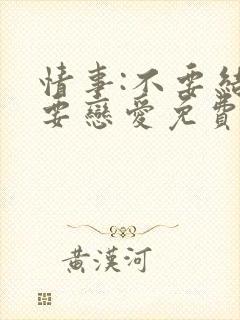 情事:不要結
要戀愛免費
黃漢河